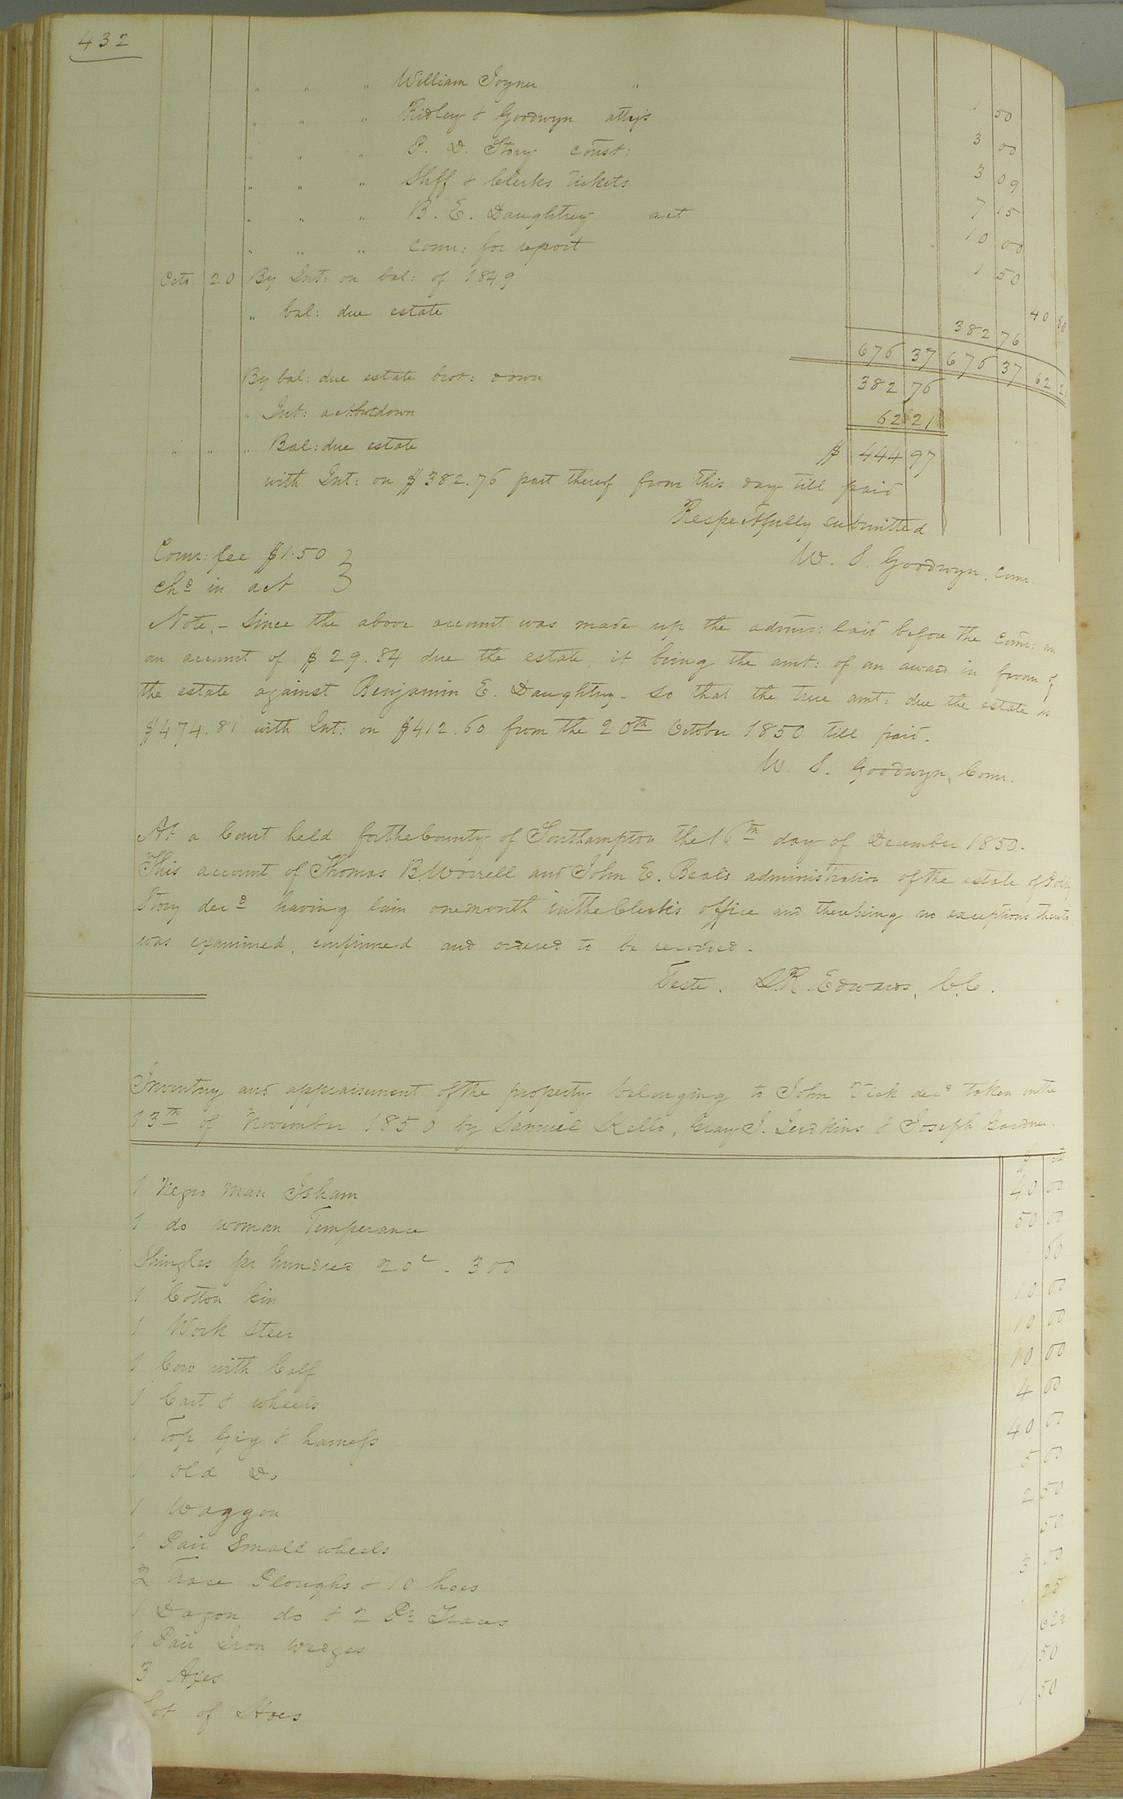 432
" " " William Joyner "
" " " Ridley & Goodwyn attys 1 50
" " " P. D. Story const: 3 00
" " " Shff & Clerks Tickets 3 09
" " " B. E. Daughtrey act 7 15
" " " comr: for report 10 00
Octo 20 By Int: on bal: of 1849 1 50
" bal: due estate 382 76 40
676 37 676 37 62 21
By bal: due estate brot: down 382 76
" Int: act brot down 62 21
" " " Bal: due estate $ 444 97
with Int: on $382.76 part thereof from this day till paid
Respectfully submitted
W. S. Goodwyn, comr
Comr: fee $1.50 }
chd in act
Note. – Since the above account was made up the admrs: laid before the comr: an
an account of $29.84 due the estate, it being the amt: of an award in favor of
the estate against Benjamin E. Daughtrey – so that the true amt: due the estate is
$474.81 with Int: on $412.60 from the 20th October 1850 till paid.
W. S. Goodwyn, Comr.
At a Court held for the County of Southampton the 16th day of December 1850.
This account of Thomas B. Worrell and John E. Beals administration of the estate of Polly
Story decd having lain one month in the Clerk's office and there being no exceptions thereto
was examined, confirmed and ordered to be recorded.
Teste. L. R. Edwards, C.C.
Inventory and appraisement of the property belonging to John Vick decd taken on the
13th of November 1850 by Samuel Kello, Gray J. Judkins & Joseph Gardner.
1 Negro man Isham 40 00
1 do woman Temperance 50 00
Shingles pr hundred 20c – 300 60
1 Cotton Gin 10 00
1 Work Steer 10 00
1 Cow with Calf 10 00
1 Cart & wheels 4 00
1 Top Gig & harness 40 00
1 old Do 5 00
1 Waggon 2 50
1 Pair Small wheels 50
2 Trace Ploughs & 10 hoes 3 00
1 Dagon do & 2 Pr Traces 25
1 Pair Iron Wedges 62½
3 Axes 50
Lot of Hoes 1 50